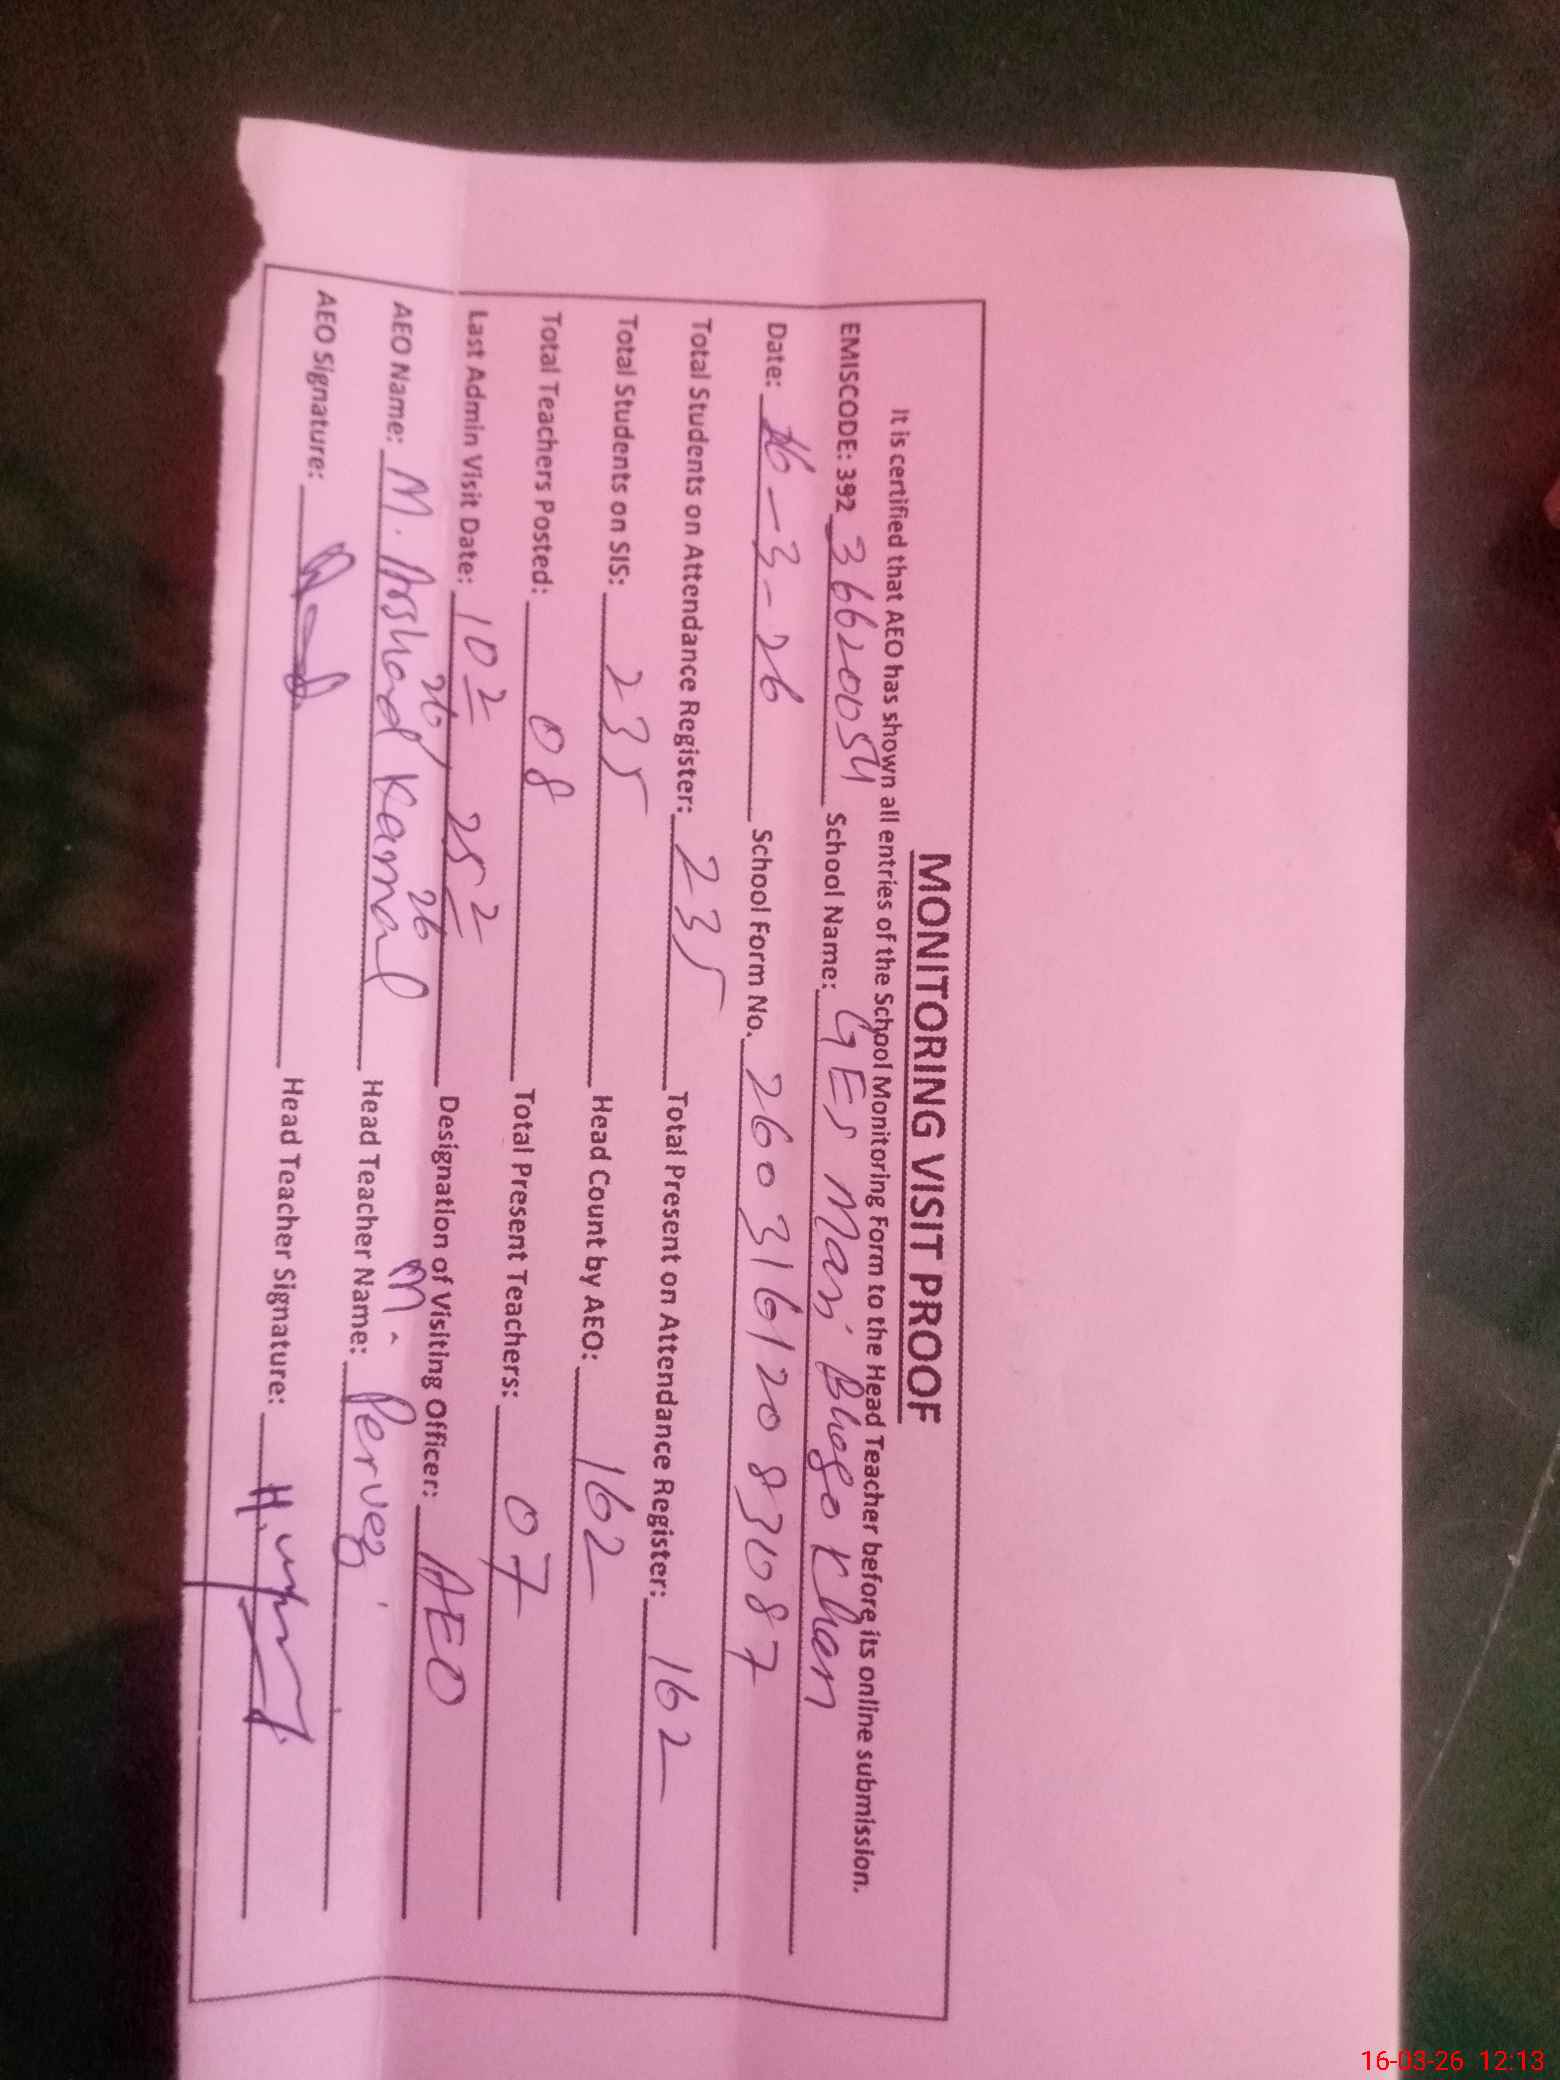 MONITORING VISIT PROOF
It is certified that AEO has shown all entries of the School Monitoring Form to the Head Teacher before its online submission.
EMISCODE: 392 36620054 School Name: GES Mari Bhago Khan
Date: 16-3-26 School Form No. 26031612083087
Total Students on Attendance Register: 235 Total Present on Attendance Register: 162
Total Students on SIS: 235 Head Count by AEO: 162
Total Teachers Posted: 08 Total Present Teachers: 07
Last Admin Visit Date: 10 2 26, 25 2 26 Designation of Visiting Officer: AEO
AEO Name: M. Arshad Kamal Head Teacher Name: M. Pervez
AEO Signature: Head Teacher Signature:
16-03-26 12:13